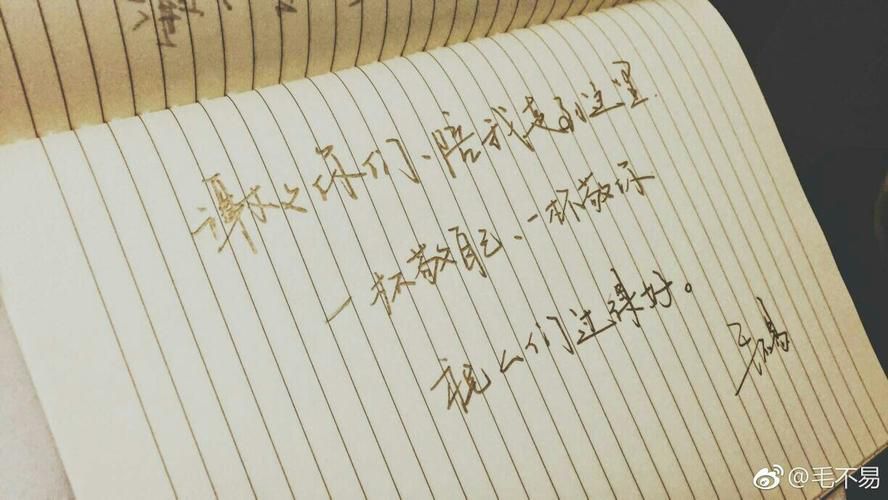 谢々你们、陪我走到这里.
一杯敬自己、一杯敬你
祝人们过得好。
毛不易
@毛不易